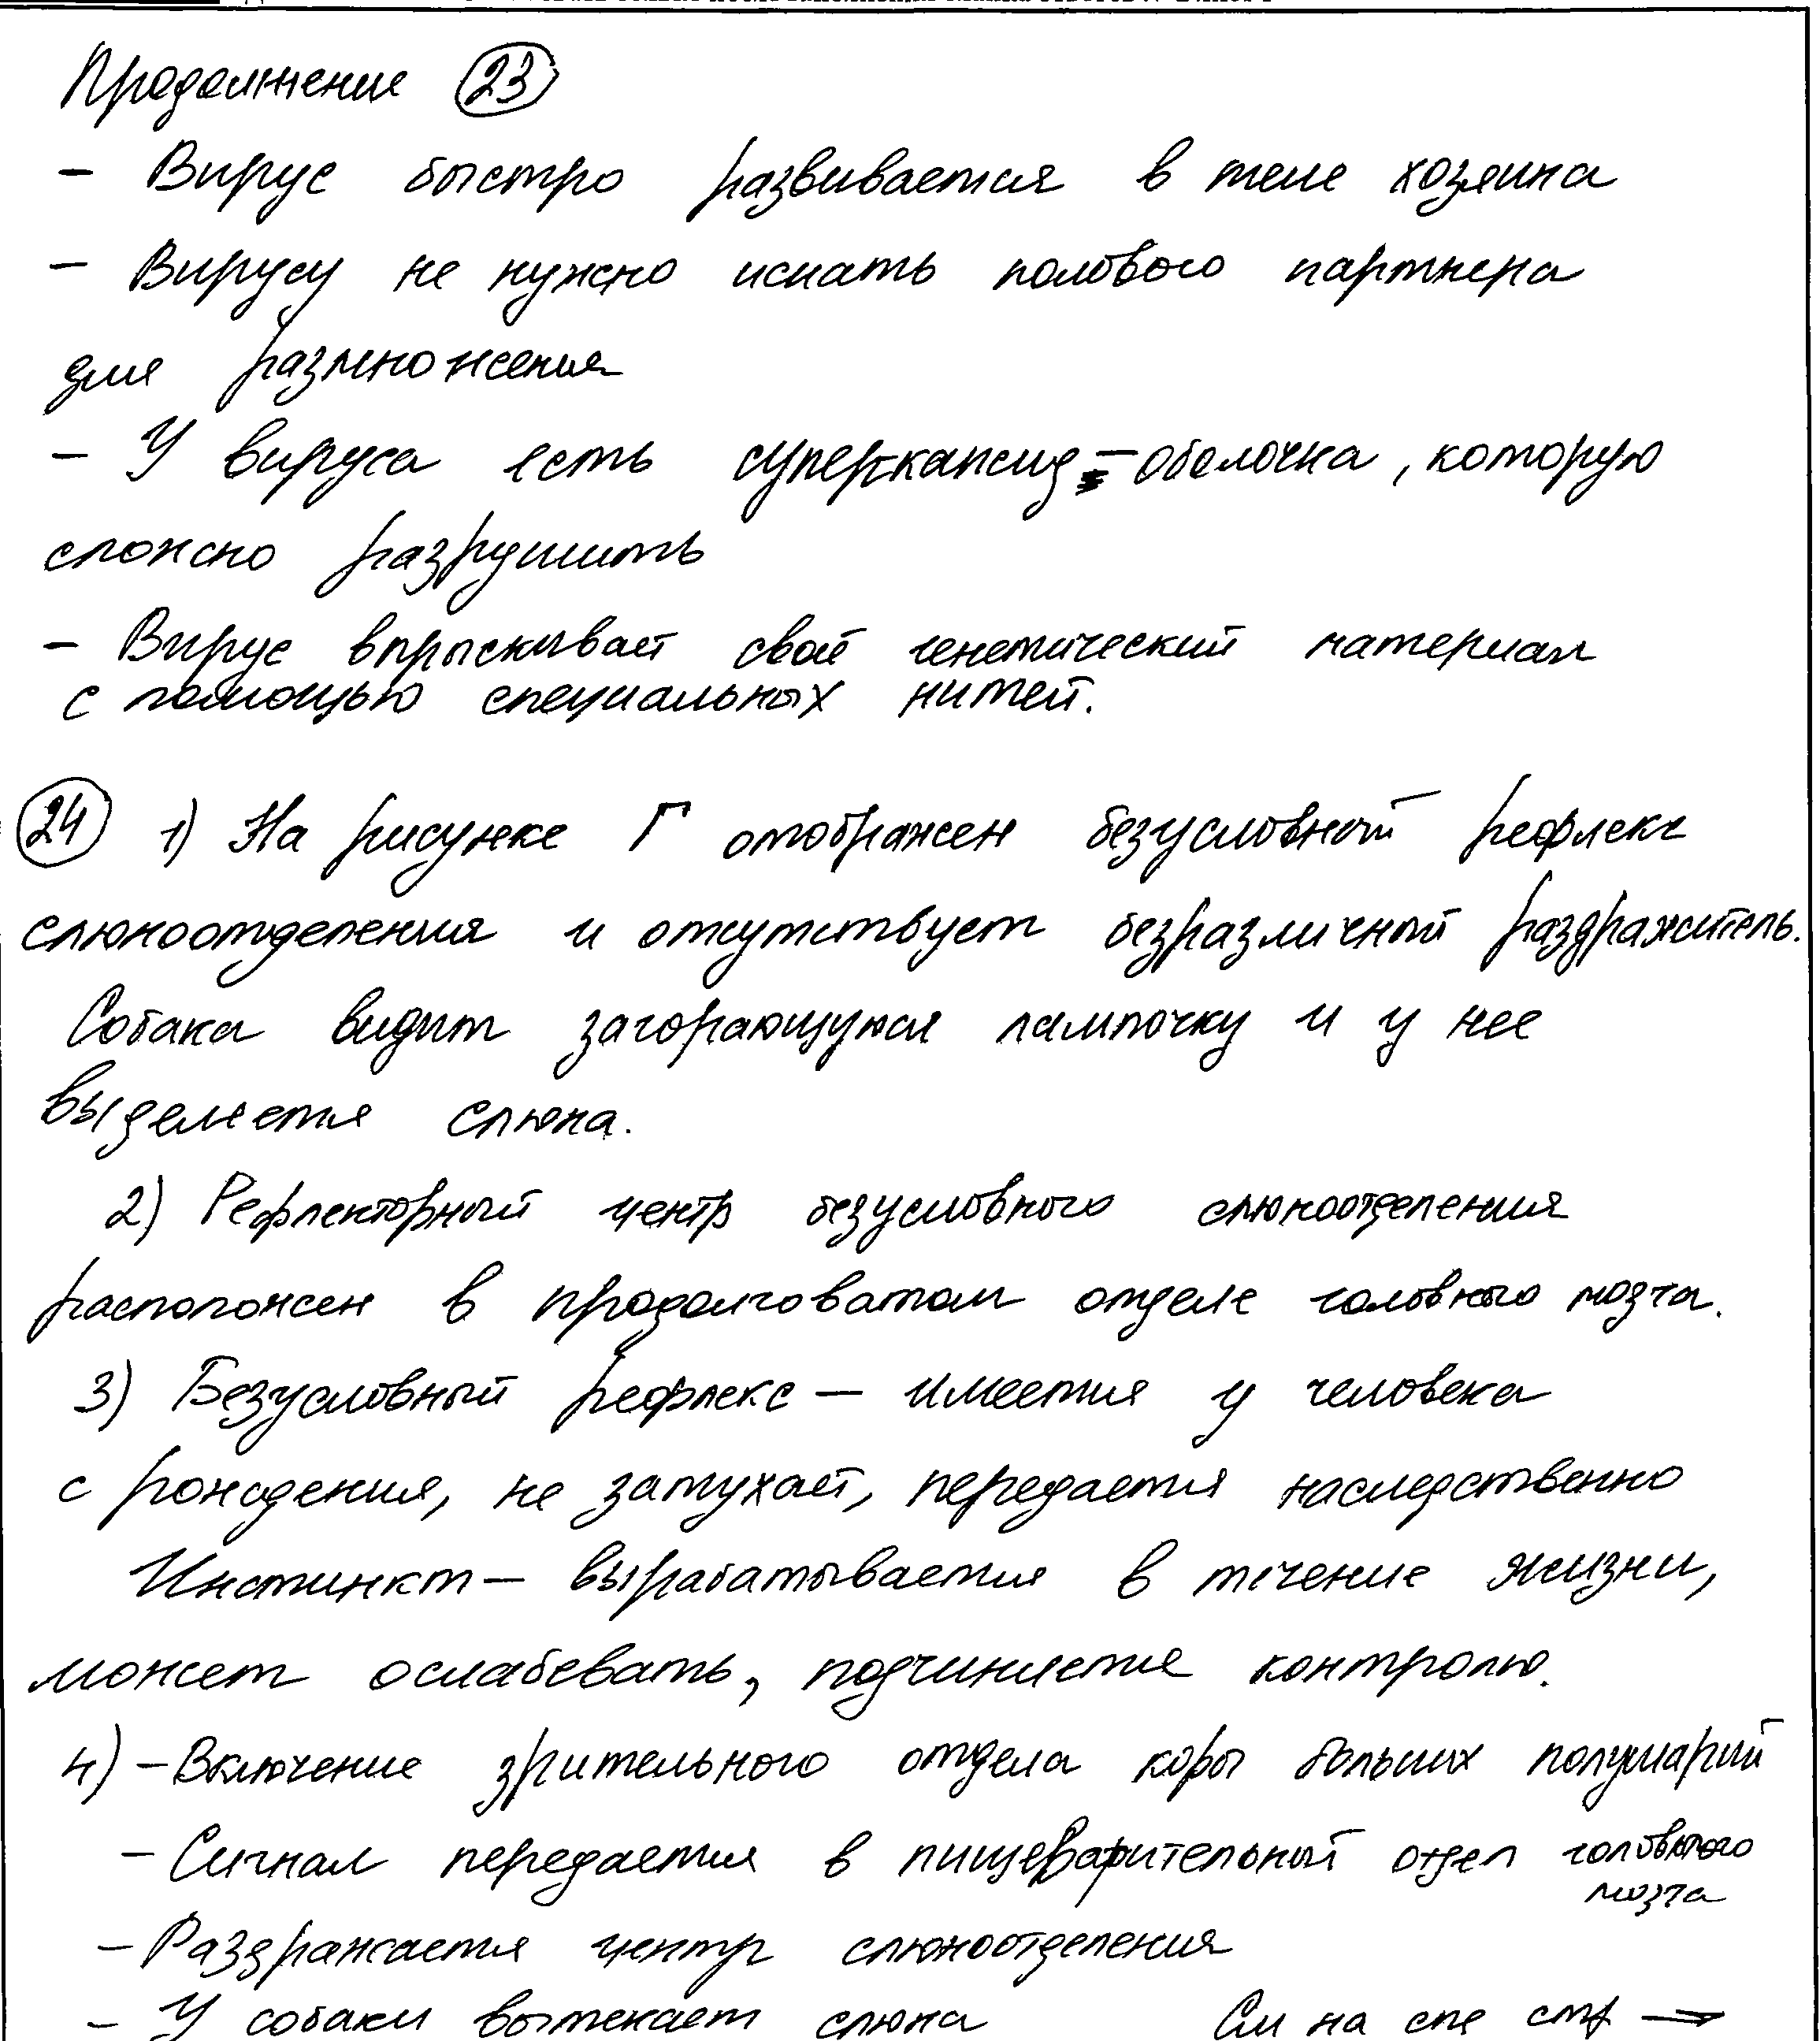 Продолжение 23
- Вирус быстро развивается в теле хозяина
- Вирусу не нужно искать полового партнера
для размножения
- У вируса есть суперкапсид - оболочка, которую
сложно разрушить
- Вирус впрыскивает свой генетический материал
с помощью специальных нитей.
24 1) На рисунке Г отображен безусловный рефлекс
слюноотделения и отсутствует безразличный раздражитель.
Собака видит загорающуюся лампочку и у нее
выделяется слюна.
2) Рефлекторный центр безусловного слюноотделения
расположен в продолговатом отделе головного мозга.
3) Безусловный рефлекс – имеется у человека
с рождения, не затухает, передается наследственно
Инстинкт – вырабатывается в течение жизни,
может ослабевать, подчиняется контролю.
4) - Включение зрительного отдела коры больших полушарий
- Сигнал передается в пищеварительный отдел головного
мозга
- Раздражается центр слюноотделения
- У собаки вытекает слюна См на сле стр →